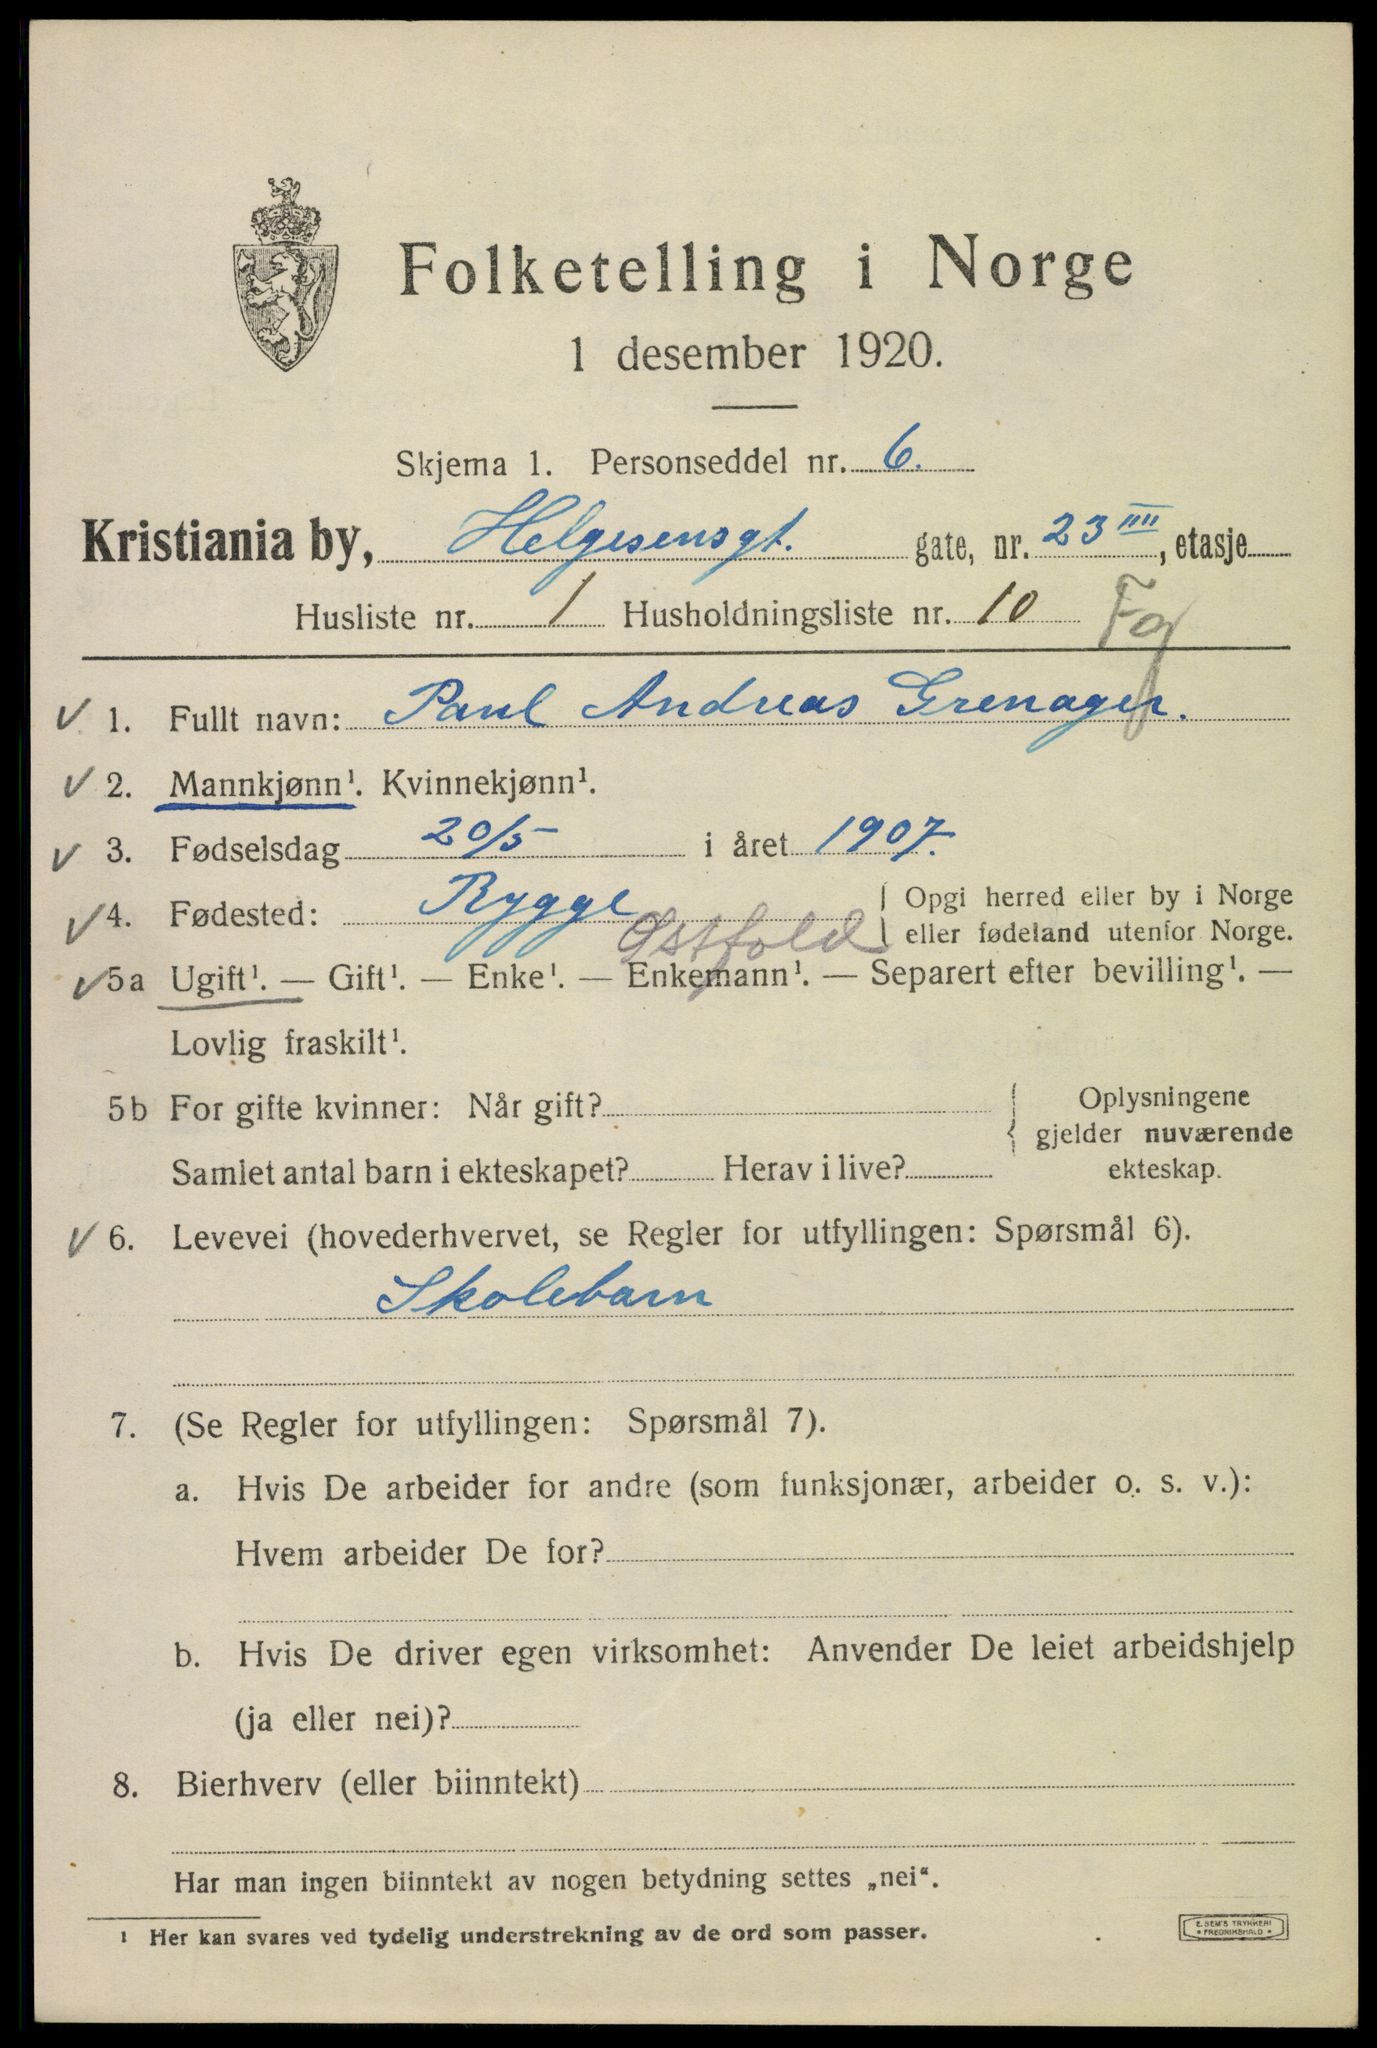 Folketelling i Norge
1 desember 1920.
Skjema 1. Personseddel nr. 6.
Kristiania by, Helgesensgt. gate, nr. 23 IIII, etasje
Husliste nr. 1 Husholdningsliste nr. 10 Fg
✓ 1. Fullt navn: Paul Andreas Grenager.
✓ 2. Mannkjønn¹. Kvinnekjønn¹.
✓ 3. Fødselsdag 20/5 i året 1907.
✓ 4. Fødested: Rygge Østfold { Opgi herred eller by i Norge
eller fødeland utenfor Norge.
✓ 5a Ugift¹. — Gift¹. — Enke¹. — Enkemann¹. — Separert efter bevilling¹. —
Lovlig fraskilt¹.
5b For gifte kvinner: Når gift? { Oplysningene
gjelder nuværende
Samlet antal barn i ekteskapet? Herav i live? ekteskap.
✓ 6. Levevei (hovederhvervet, se Regler for utfyllingen: Spørsmål 6).
Skolebarn
7. (Se Regler for utfyllingen: Spørsmål 7).
a. Hvis De arbeider for andre (som funksjonær, arbeider o. s. v.):
Hvem arbeider De for?
b. Hvis De driver egen virksomhet: Anvender De leiet arbeidshjelp
(ja eller nei)?
8. Bierhverv (eller biinntekt)
Har man ingen biinntekt av nogen betydning settes „nei“.
¹ Her kan svares ved tydelig understrekning av de ord som passer.
E. SEM'S TRYKKERI
* FREDRIKSHALD *